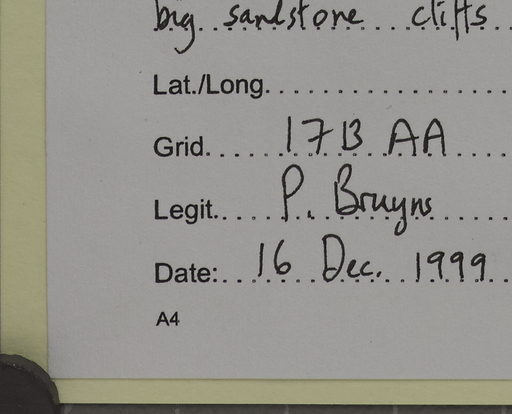 big sandstone cliffs
Lat./Long.
Grid. 1713 AA
Legit. P. Bruyns
Date: 16 Dec. 1999
A4